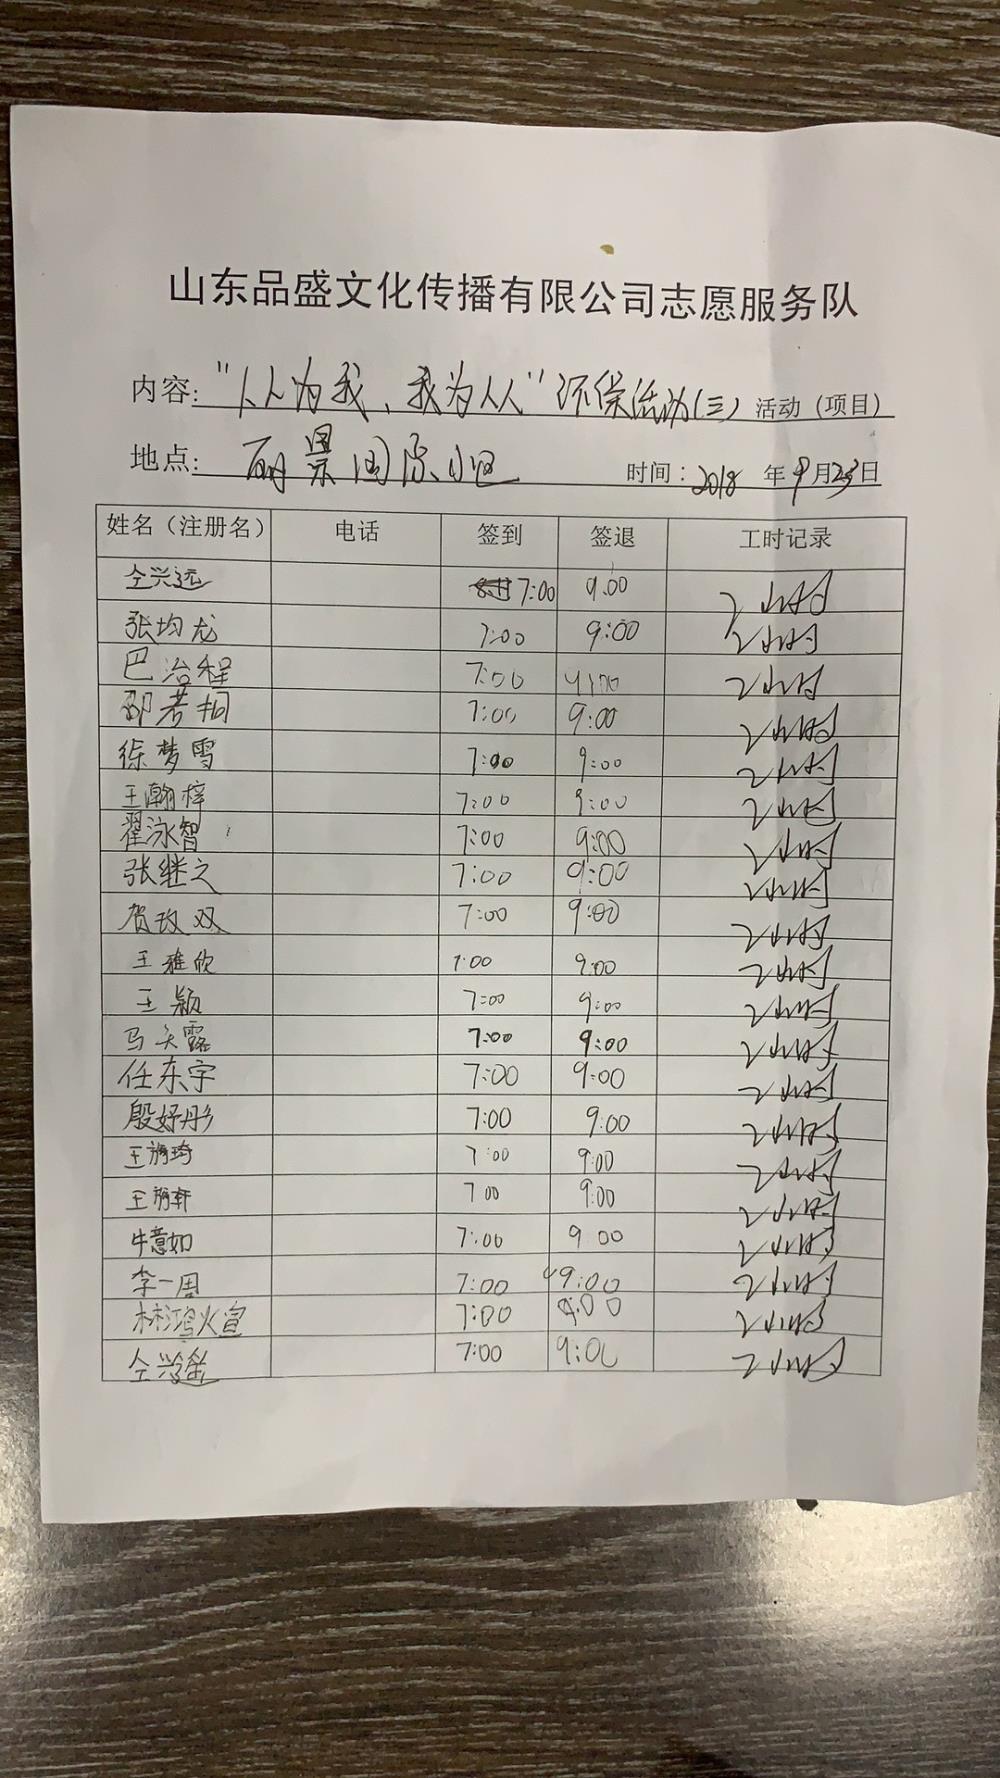 山东品盛文化传播有限公司志愿服务队
内容:"人人为我、我为人人"环保活动(三)活动(项目)
地点:丽景国际小区 时间:2018年9月23日
姓名(注册名) 电话 签到 签退 工时记录
仝兴远 7:00 9:00 2小时
张均龙 7:00 9:00 2小时
巴治程 7:00 9:00 2小时
邵若桐 7:00 9:00 2小时
徐梦雪 7:00 9:00 2小时
王瀚梓 7:00 9:00 2小时
翟泳智 7:00 9:00 2小时
张继之 7:00 9:00 2小时
贺玫双 7:00 9:00 2小时
王雅欣 7:00 9:00 2小时
王颖 7:00 9:00 2小时
马天露 7:00 9:00 2小时
任东宇 7:00 9:00 2小时
殷妤彤 7:00 9:00 2小时
7:00 9:00 2小时
7 00 9:00 2小时
牛意如 7:00 9 00 2小时
李一周 7:00 9:00 2小时
林鸿煊 7:00 9:00 2小时
仝兴 7:00 9:00 2小时